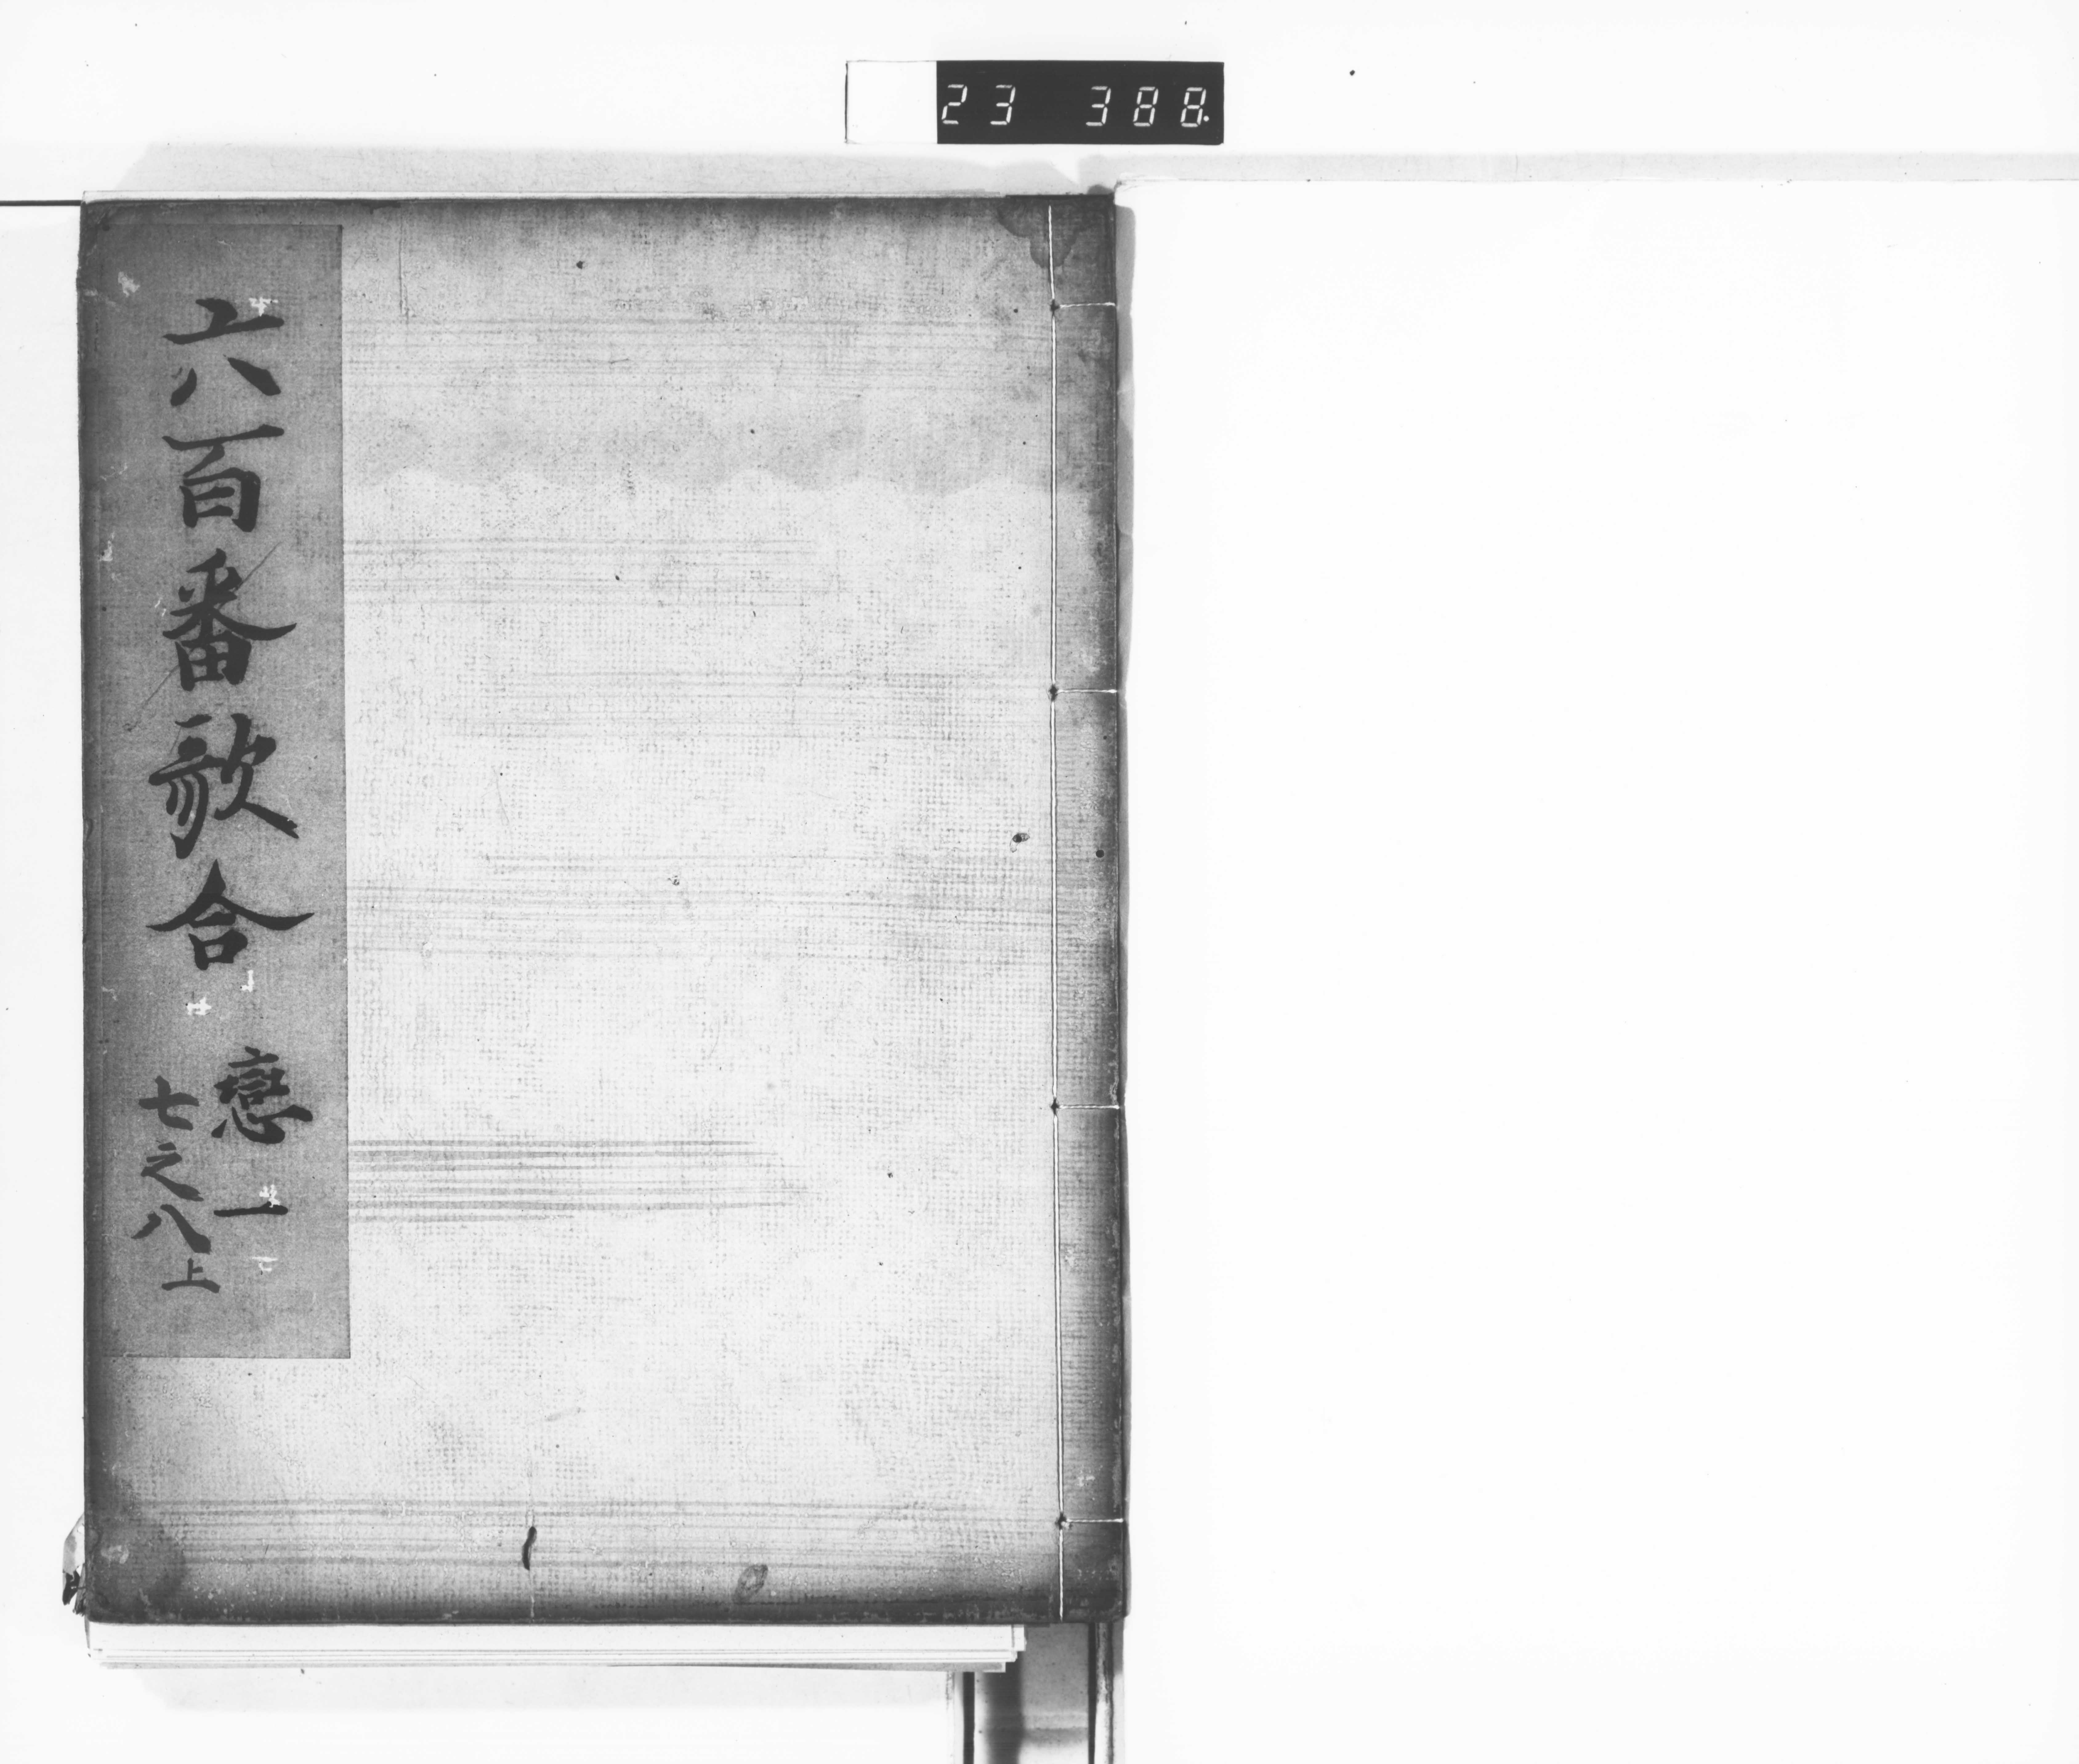 23 388
六百番歌合
戀一
七之八上